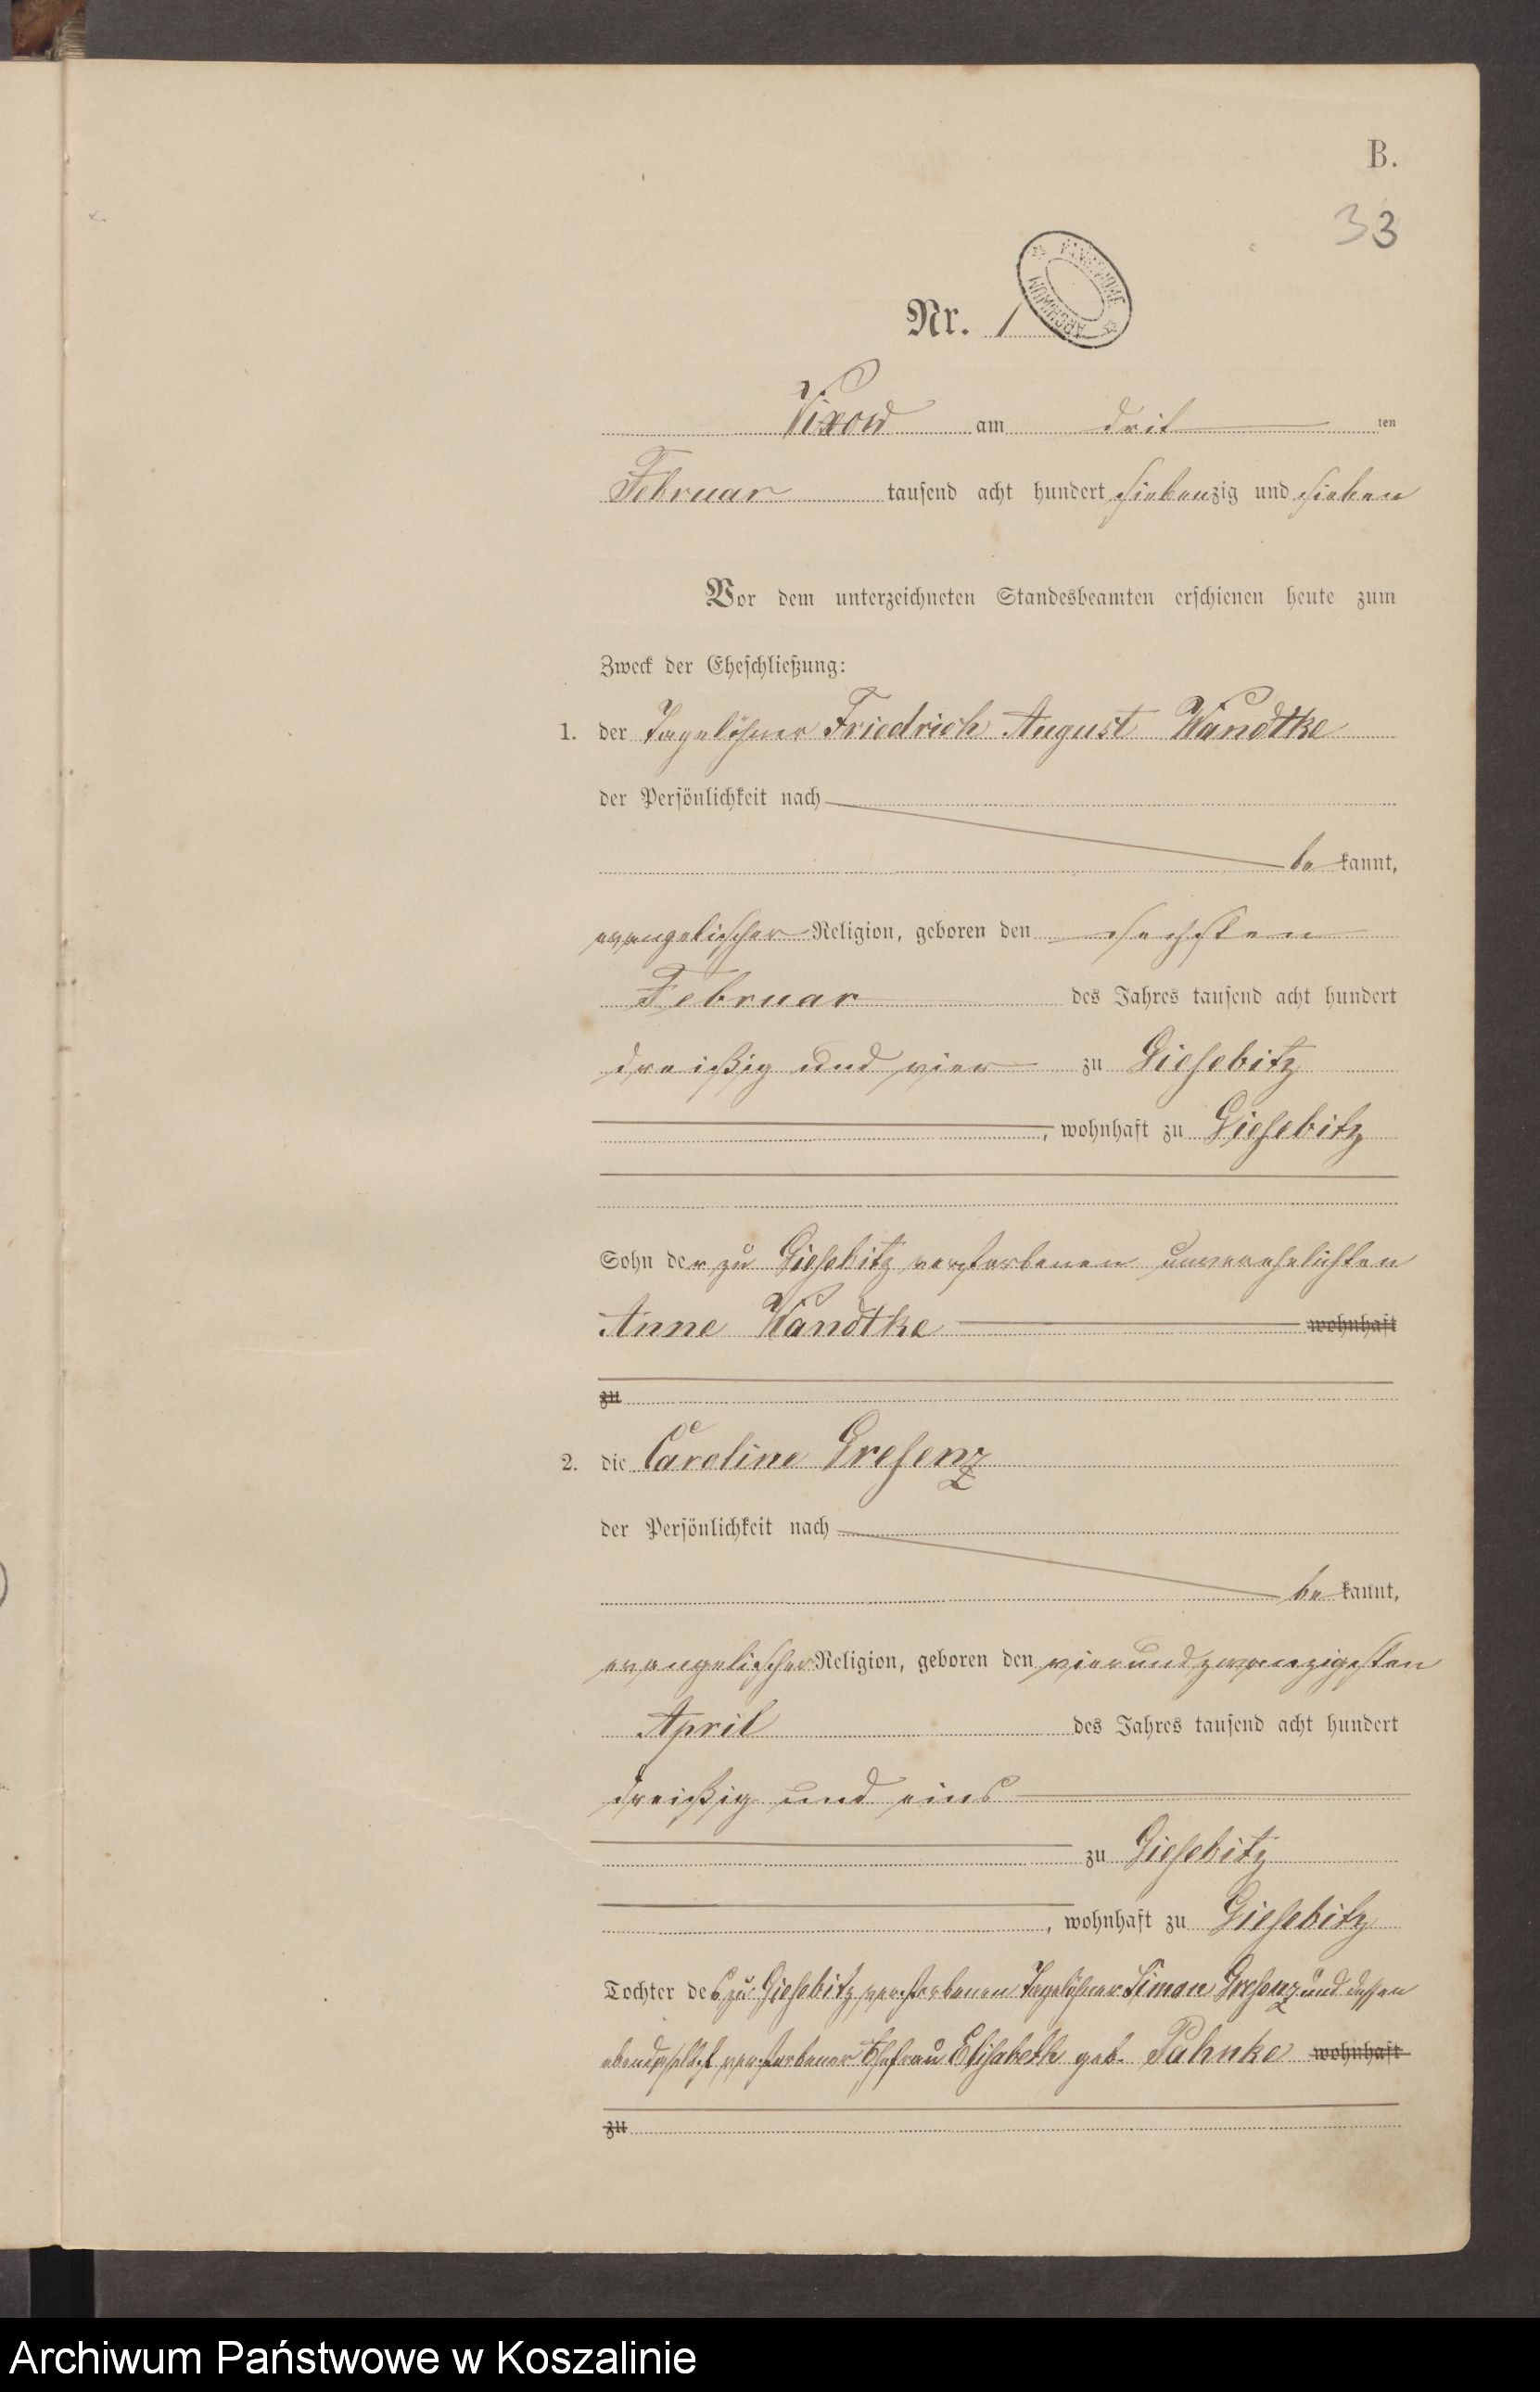 B.
33
ARCHIWUM PAŃSTWOWE
Nr. 1
Vixow am drit ten
Februar tausend acht hundert siebenzig und sieben
Vor dem unterzeichneten Standesbeamten erschienen heute zum
Zweck der Eheschließung:
1. der Tagelöhner Friedrich August Wandtke
der Persönlichkeit nach
be kannt,
evangelischer Religion, geboren den sechsten
Februar des Jahres tausend acht hundert
dreißig und vier zu Giesebitz
, wohnhaft zu Giesebitz
Sohn der zu Giesebitz verstorbenen unverehelichten
Anne Wandtke wohnhaft
zu
2. die Caroline Gresenz
der Persönlichkeit nach
be kannt,
evangelischer Religion, geboren den vierundzwanzigsten
April des Jahres tausend acht hundert
dreißig und eins
zu Giesebitz
, wohnhaft zu Giesebitz
Tochter des zu Giesebitz verstorbenen Tagelöhner Simon Gresenz und dessen
ebendaselbst verstorbener Ehefrau Elisabeth geb. Pahnke wohnhaft
zu
Archiwum Państwowe w Koszalinie